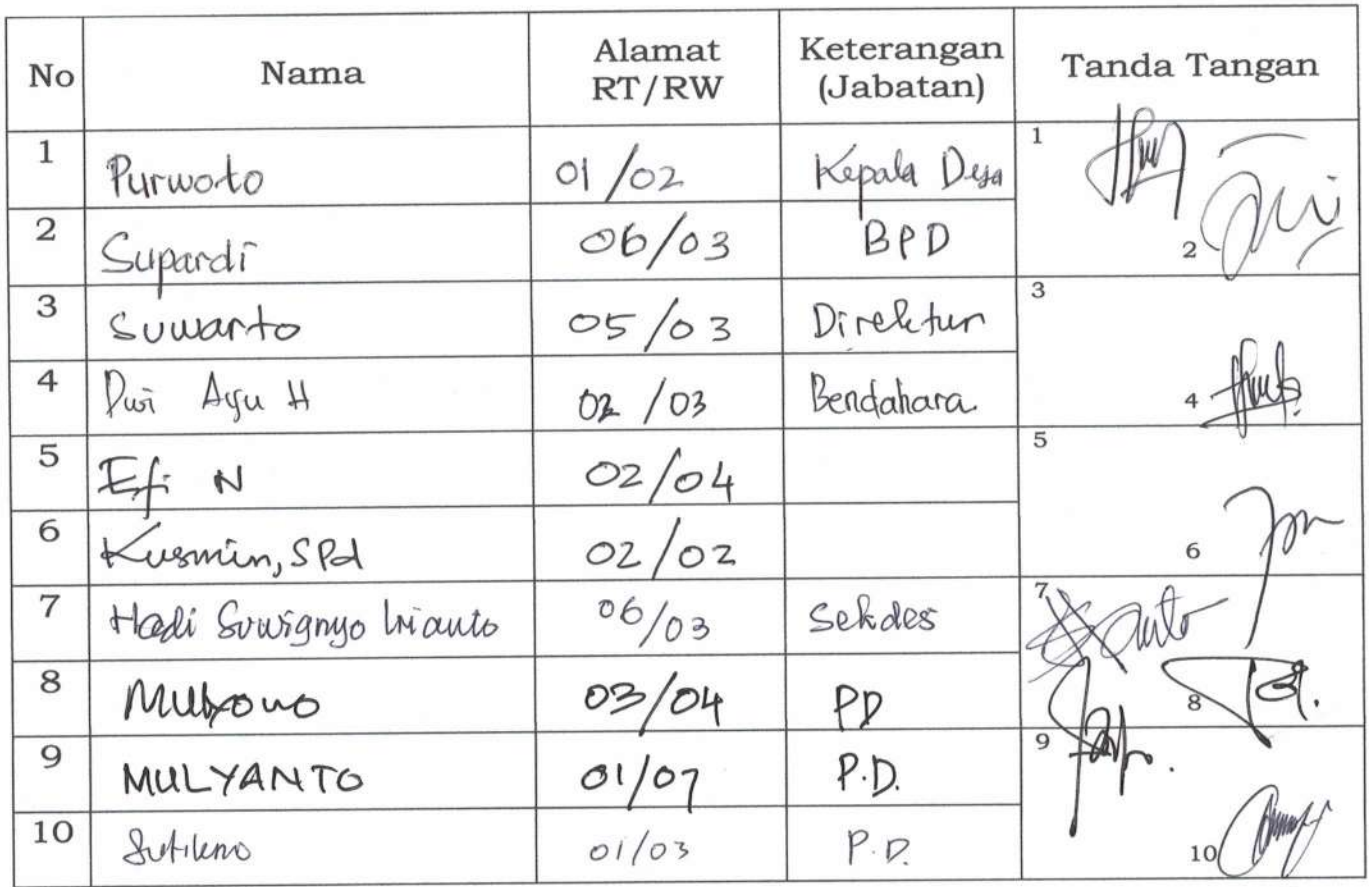 No Nama Alamat RT/RW Keterangan (Jabatan) Tanda Tangan
1 Purwoto 01/02 Kepala Desa 1
2 Supardi 06/03 BPD 2
3 Suwarto 05/03 Direktur 3
4 Dwi Ayu H 02/03 Bendahara. 4
5 Efi N 02/04 5
6 Kusmin, SPd 02/02 6
7 Hadi Suwignyo Irianto 06/03 Sekdes 7
8 Mulyono 03/04 PD 8
9 MULYANTO 01/07 P.D. 9
10 Sutikno 01/03 P.D. 10